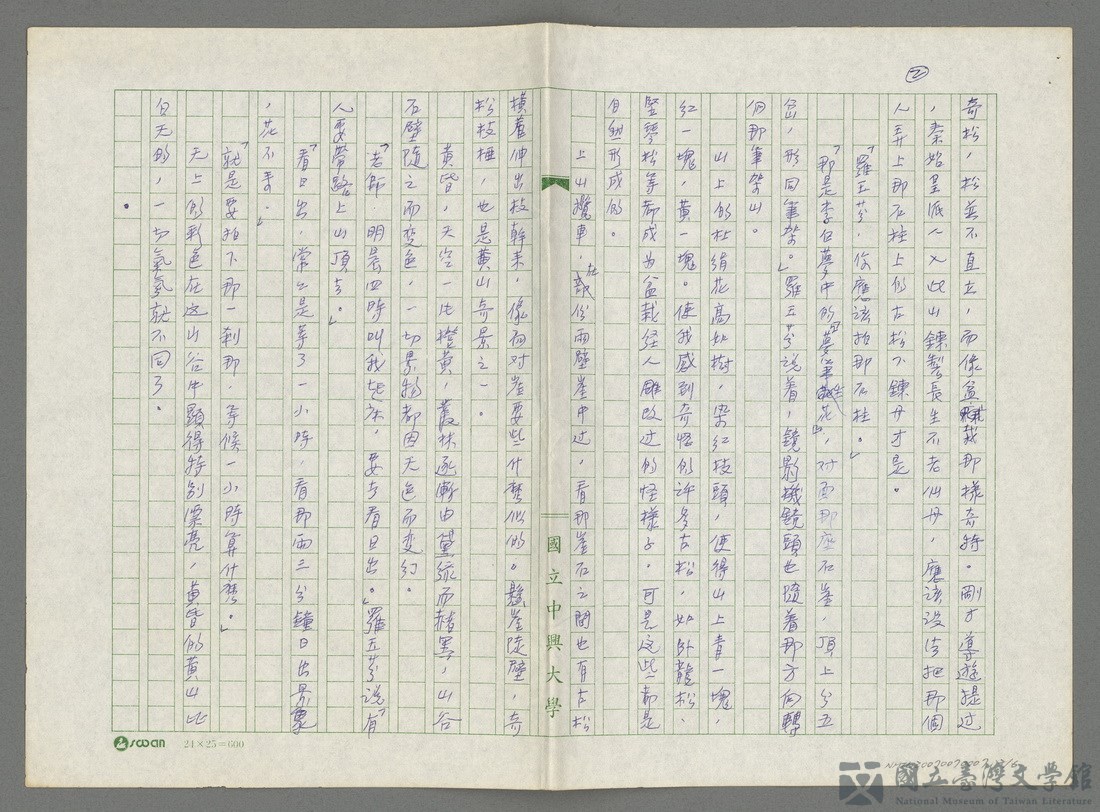 ②
奇松，松並不直立，而像盆栽那樣奇特。剛才導遊提过
，秦始皇派人入此山鍊製長生不老仙丹，應該設法把那個
人弄上那石柱上的古松下鍊丹才是。
「羅玉芬，你應該拍那石柱。」
「那是李白夢中的『夢筆生花』，对面那座石崖，頂上分五
岔，形同筆架。」羅玉芬说着，鏡影機鏡頭也隨着那方向轉
向那筆架山。
山上的杜鵑花高如樹，染紅枝頭，使得山上青一塊，
紅一塊，黄一塊。使我感到奇怪的許多古松，如卧龍松、
竪琴松等都成为盆栽经人雕改过的怪樣子。可是这些都是
自然形成的。
上山纜車，在部份兩壁崖中过，看那崖石之間也有古松
橫着伸出枝幹来，像向对崖要些什麼似的。懸崖陡壁，奇
松枝椏，也是黄山奇景之一。
黄昏，天空一片橙黄，叢林逐漸由黛綠而赭黑，山谷
石壁隨之而变色，一切景物都因天色而变幻。
「老師，明晨四時叫我起床，要去看日出。」羅玉芬说「有
人要帶路上山頂去。」
「看日出，常常是等了一小時，看那兩三分鐘日出景象
，花不来。」
「就是要拍下那一剎那，等候一小時算什麼。」
天上的彩色在这山谷中顯得特别漂亮，黄昏的黄山比
白天的，一切氣氛就不同了。
國立中興大學
swan
24×25=600
國立臺灣文學館
National Museum of Taiwan Literature